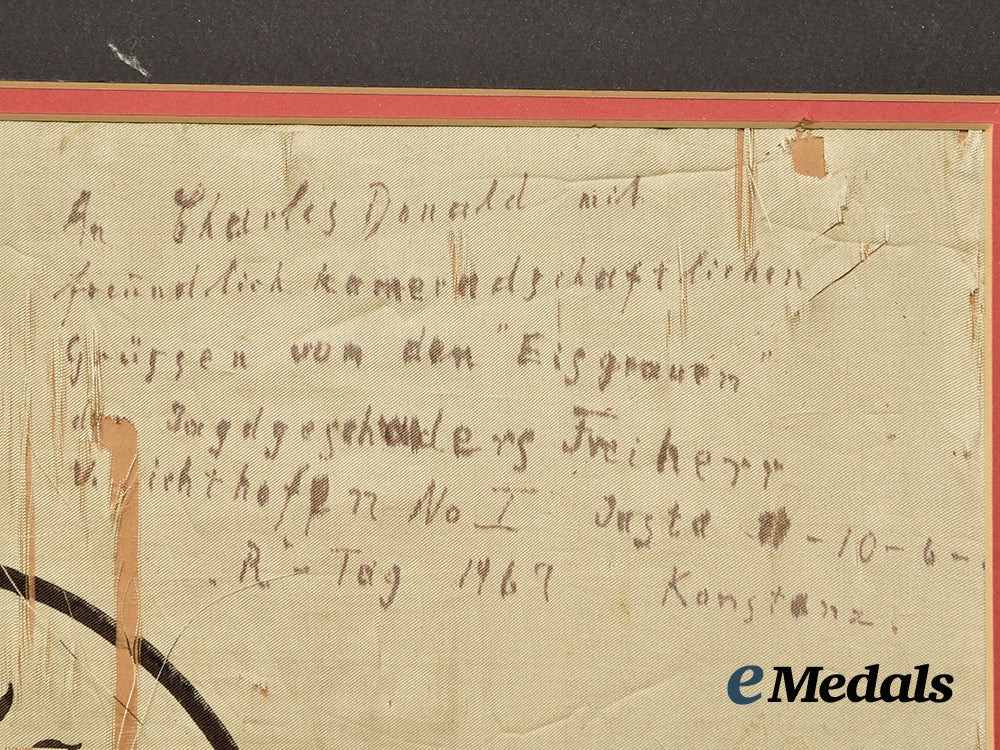 An Charles Donald mit
freundlich kameradschaftlichen
Grüssen von den "Eisgrauen"
Jagdgeschwaders Freiherr
v. ichthofen No I Jasta 11-10-6-
R-Tag 1967 Konstanz.
eMedals